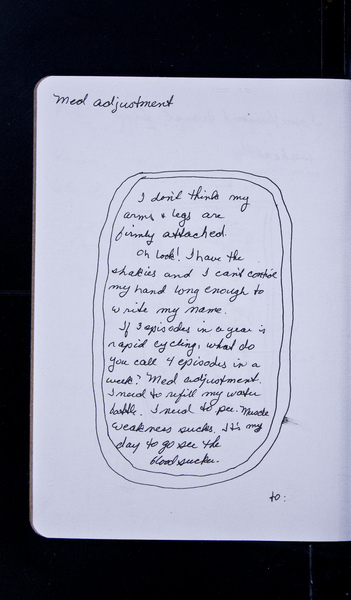 Med adjustment
I don't think my
arms & legs are
firmly attached.
Oh look! I have the
shakies and I can't control
my hand long enough to
write my name.
If 3 episodes in a year is
rapid cycling, what do
you call 4 episodes in a
week? Med adjustment.
I need to refill my water
bottle. I need to pee. Muscle
weakness sucks. It's my
day to go see the
bloodsucker.
to: